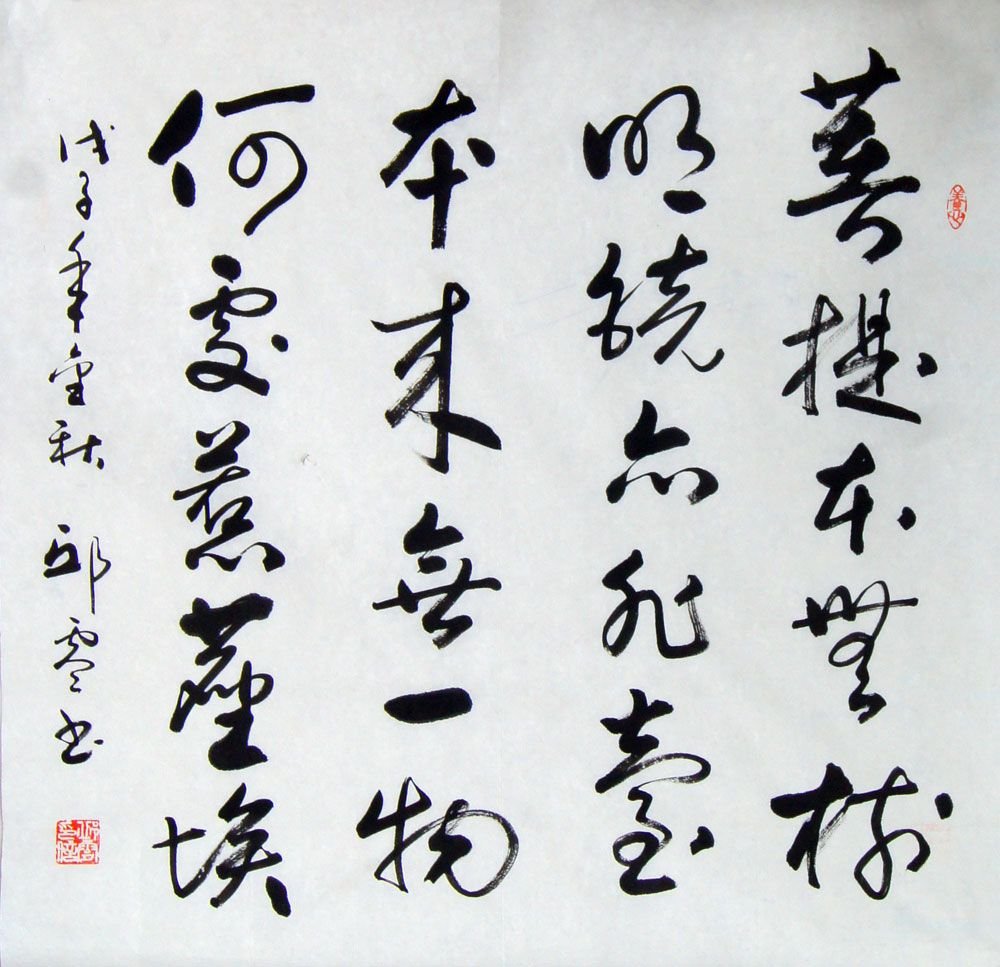 菩提本無樹
明鏡亦非臺
本來無一物
何處惹塵埃
戊子年金秋 邱零书